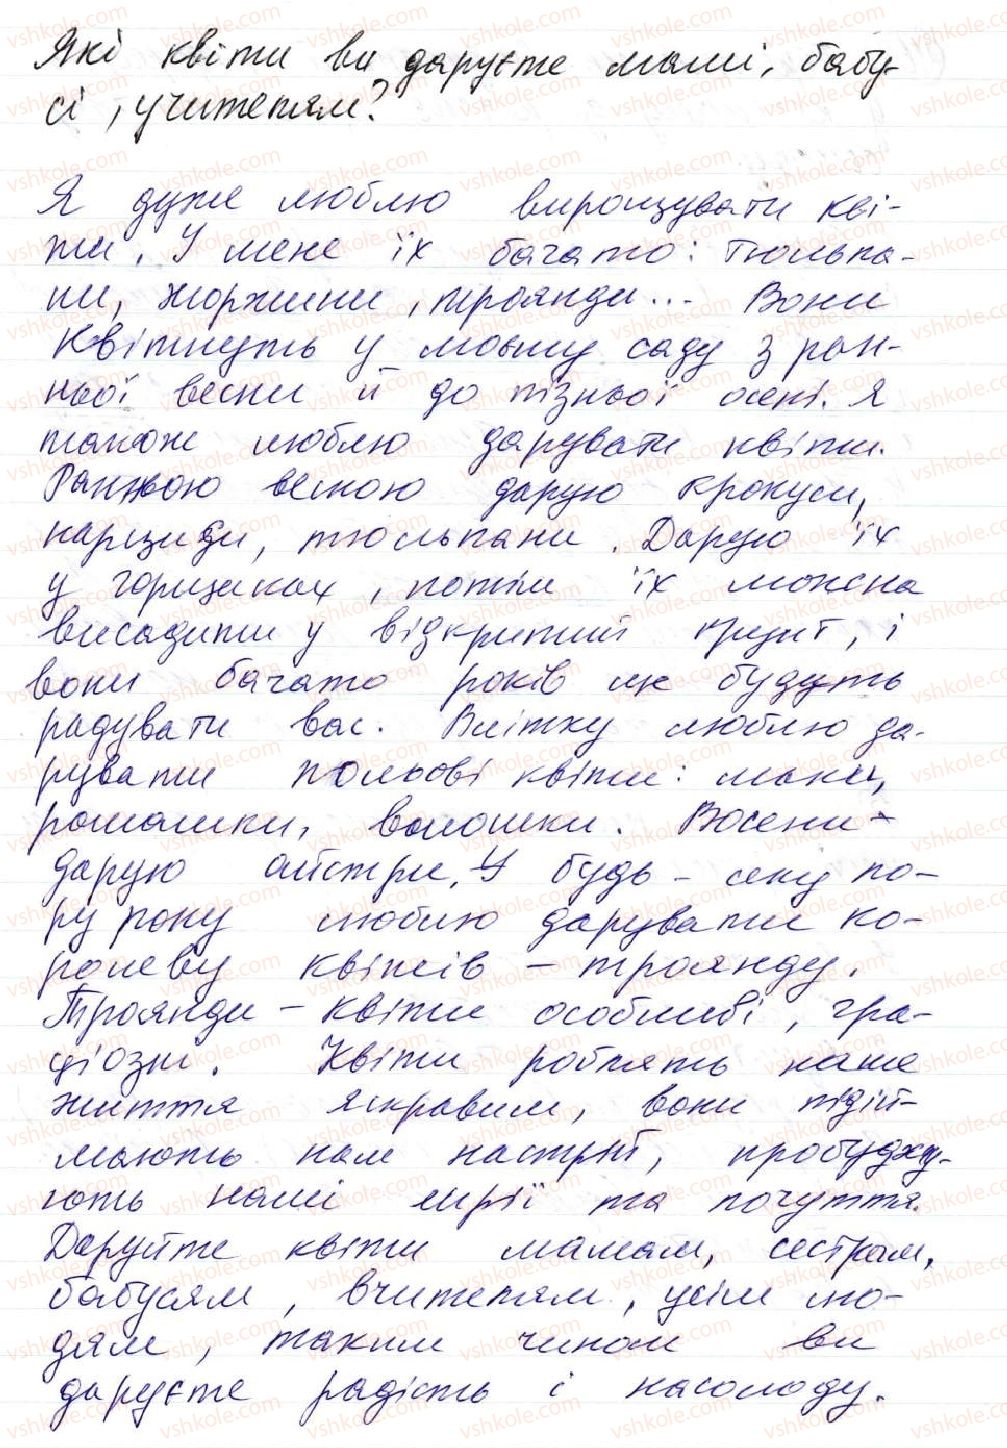 Які квіти ви даруєте мамі, бабу-
сі, учителям?
Я дуже люблю вирощувати кві-
ти. У мене їх багато: тюльпа-
ни, жоржини, троянди... Вони
квітнуть у моєму саду з ран-
ньої весни й до пізньої осені. Я
також люблю дарувати квіти.
Ранньою весною дарую крокуси,
нарциси, тюльпани. Дарую їх
у горщиках, потім їх можна
висадити у відкритий ґрунт, і
вони багато років ще будуть
радувати вас. Влітку люблю да-
рувати польові квіти: маки,
ромашки, волошки. Восени -
дарую айстри. У будь-яку по-
ру року люблю дарувати ко-
ролеву квітів - троянду.
Троянди - квіти особливі, гра-
ціозні. Квіти роблять наше
життя яскравим, вони підій-
мають нам настрій, пробуджу-
ють наші мрії та почуття.
Даруйте квіти мамам, сестрам,
бабусям, вчителям, усім лю-
дям, таким чином ви
даруєте радість і насолоду.